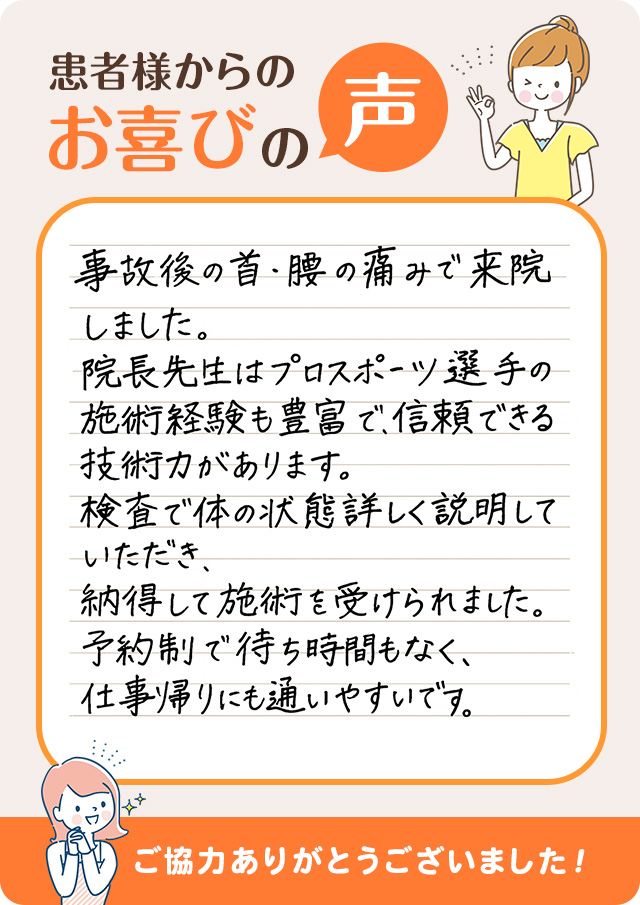 患者様からの
お喜びの声
事故後の首・腰の痛みで来院
しました。
院長先生はプロスポーツ選手の
施術経験も豊富で、信頼できる
技術力があります。
検査で体の状態詳しく説明して
いただき、
納得して施術を受けられました。
予約制で待ち時間もなく、
仕事帰りにも通いやすいです。
ご協力ありがとうございました!